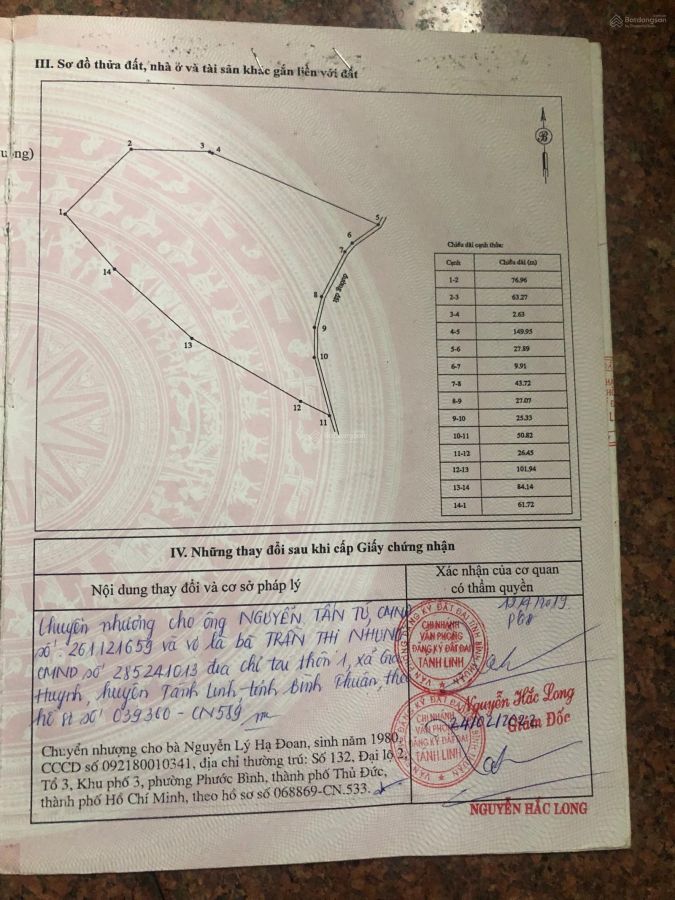 Batdongsan
III. Sơ đồ thửa đất, nhà ở và tài sản khác gắn liền với đất
uộng)
B
2
3
4
1
5
6
7
14
8
đường đất
9
13
10
12
11
Chiều dài cạnh thửa:
Cạnh Chiều dài (m)
1-2 76.96
2-3 63.27
3-4 2.63
4-5 149.95
5-6 27.89
6-7 9.91
7-8 43.72
8-9 27.07
9-10 25.33
10-11 50.82
11-12 26.45
12-13 101.94
13-14 84.14
14-1 61.72
IV. Những thay đổi sau khi cấp Giấy chứng nhận
Nội dung thay đổi và cơ sở pháp lý
Xác nhận của cơ quan
có thẩm quyền
Chuyển nhượng cho ông NGUYỄN TẤN TÚ, CMND
số: 261121659 và vợ là bà TRẦN THỊ NHUNG
CMND số 285241013 địa chỉ tại thôn 1, xã
Huynh, huyện Tánh Linh - tỉnh Bình Thuận, theo
hồ sơ số 039360 - CN589
CHI NHÁNH
VĂN PHÒNG
ĐĂNG KÝ ĐẤT ĐAI
TÁNH LINH
Nguyễn Hắc Long
Giám Đốc
24/02/2022
CHI NHÁNH
VĂN PHÒNG
ĐĂNG KÝ ĐẤT ĐAI
TÁNH LINH
Chuyển nhượng cho bà Nguyễn Lý Hạ Đoan, sinh năm 1980,
CCCD số 092180010341, địa chỉ thường trú: Số 132, Đại lộ 2,
Tổ 3, Khu phố 3, phường Phước Bình, thành phố Thủ Đức,
thành phố Hồ Chí Minh, theo hồ sơ số 068869-CN.533.
NGUYỄN HẮC LONG